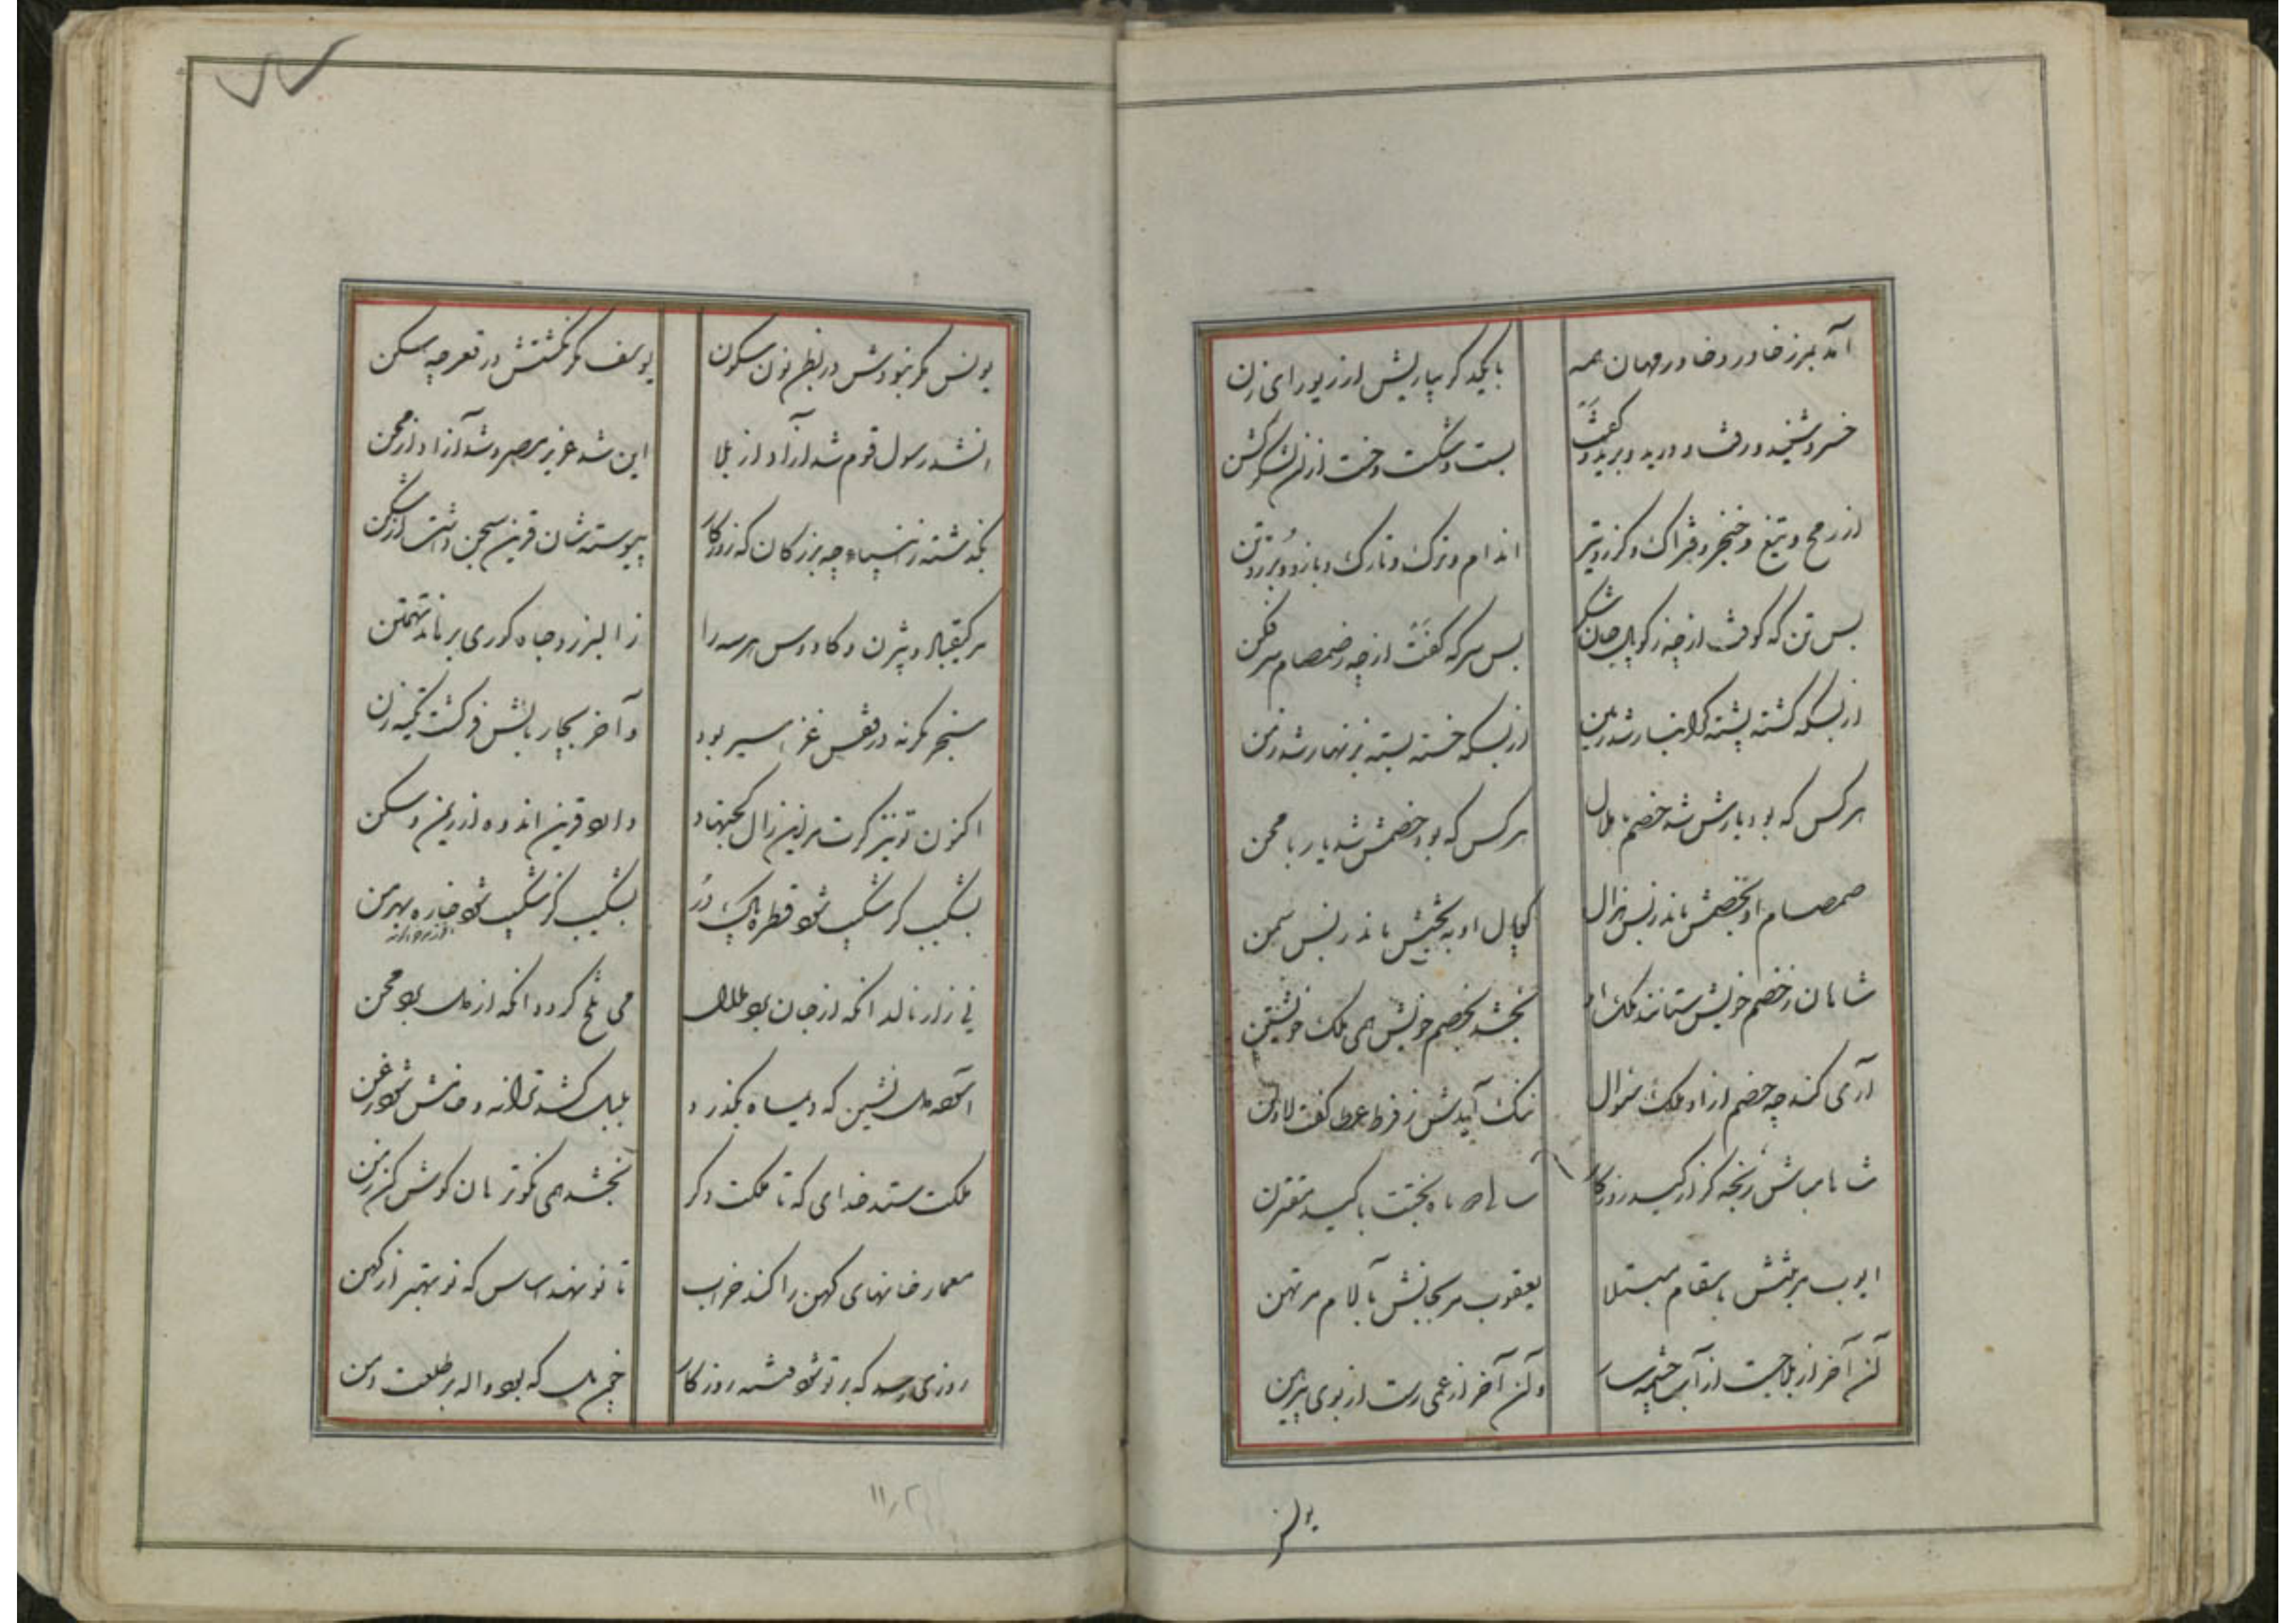 آمد بمرز خاور و خاور مهان همه
با یکدگر بپارش از زیو رای زن
خسرو شنید و رفت و درید و برید و کفت
بست و شکست و خست از لشکرکش
از رمح و تیغ و خنجر و فتراک و گرز و تیر
اندام و ترک و تارک و بازو و برز و تن
بس تن که کوفت از چه ز کوپال جان شکر
بس سر که کفت از چه ز صمصام سرفکن
از بسکه کشته پشته کرانبار شد زمین
از بسکه خسته بسته بزنهار شد زمن
هر کس که بود یارش شد خصم با ملال
هر کس که بود خصمش شد یار با محن
صمصام او بخصمش ماند ز بس هزال
کوپال او به بختش ماند ز بس سمن
شاهان ز خصم خویش ستانند ملک او
بخشد بخصم خویش همی ملک خویشتن
آری کند چه خصم از او ملک سؤال
ننگ آیدش ز فرط عطا گفت لا و لن
شاها مباش رنجه گر از کید روزگار
سالی دو ماه بختت با کید مقترن
ایوب مر تنش بسقام مبتلا
یعقوب مر بجانش بآلام مرتهن
آن آخر از بلا جست از آب چشمه سار
و آن آخر از عمی رست از بوی پیرهن
یونس
یونس مگر نبودش در بطن نون سکون
یوسف مگر نگشتش در قعر چه سکن
آن شد رسول قوم شد آزاد از بلا
این شد عزیز مصر و شد آزاد از محن
بگذشته ز انبیاء چه بزرگان که روزگار
پیوسته شان قرین سجن داشت از شکن
مر کیقباد و بیژن و کاووس هر سه را
ز البرز و چاه و کوری برهاند تهمتن
سنجر مگر نه در قفس غز اسیر بود
و آخر بچار بالش فر گشت تکیه زن
اکنون تو نیز گرت مر این زال کجنهاد
دارد قرین اندوه از ریمن و سکن
بشکیب کز شکیب شود قطره پاک در
بشکیب کز شکیب شود خاره بهرمن
نی زار نالد آنکه از جان بود ملال
می تلخ گردد آنکه از دل بود محن
آسوده دل نشین که دیماه بگذرد
بلبل کشد ترانه و خامش شود زغن
ملکت ستد خدای که تا ملکت دگر
بخشد همی نکوتر هان گوش کن ز من
معمار خانهای کهن را کند خراب
تا نو نهد اساس که نو بهتر از کهن
روزی رسد که بر تو شود فتنه روزگار
چون دل که بود واله بر طلعت دمن